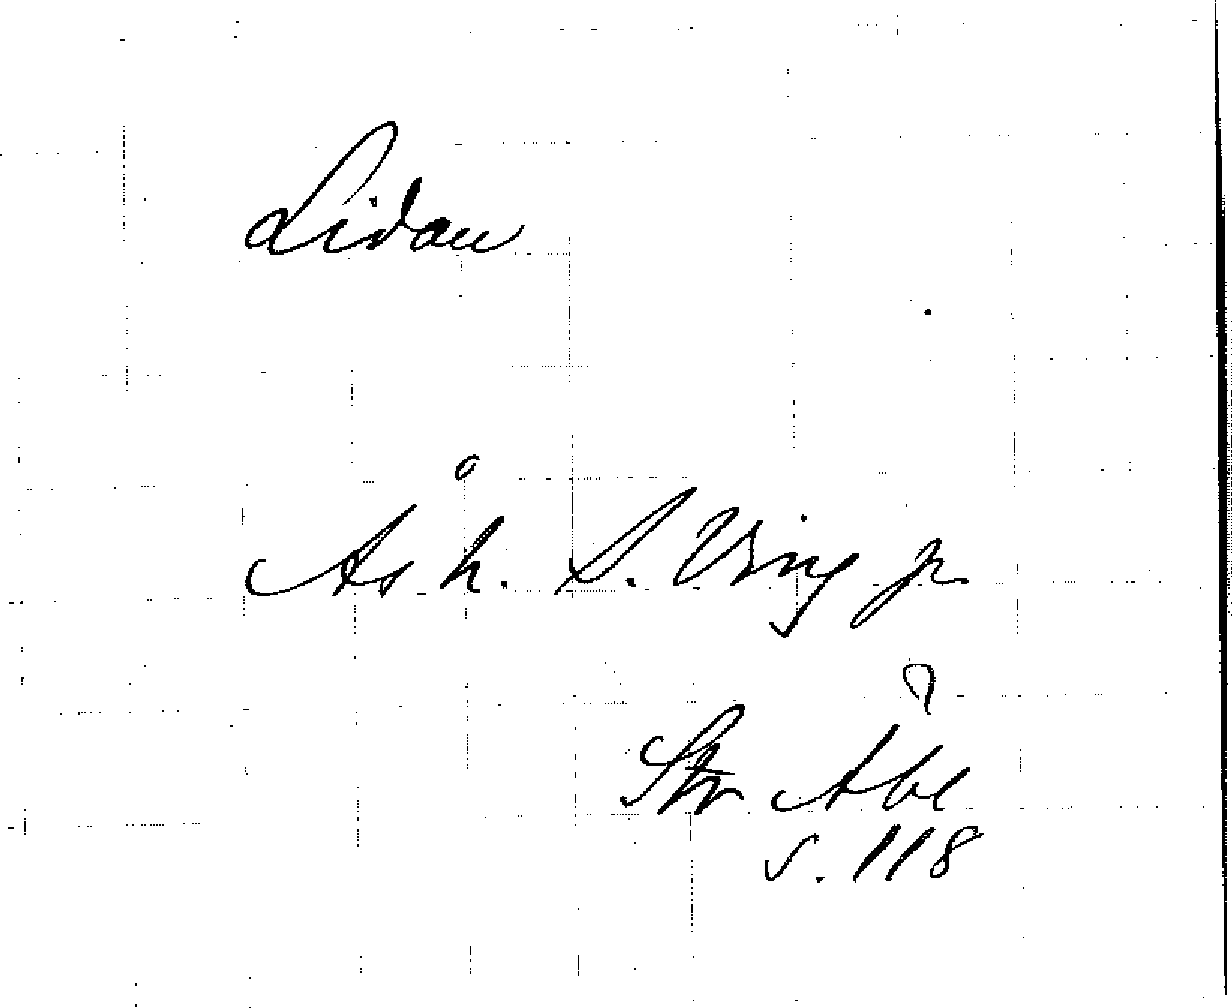 Lidau
Ås h. S. Ving sn
Str Åbl
s. 118